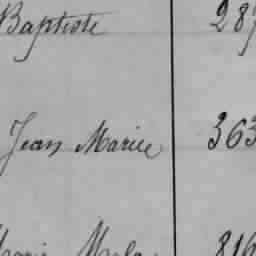 Baptiste 287
Jean Marie 363
Marie 816